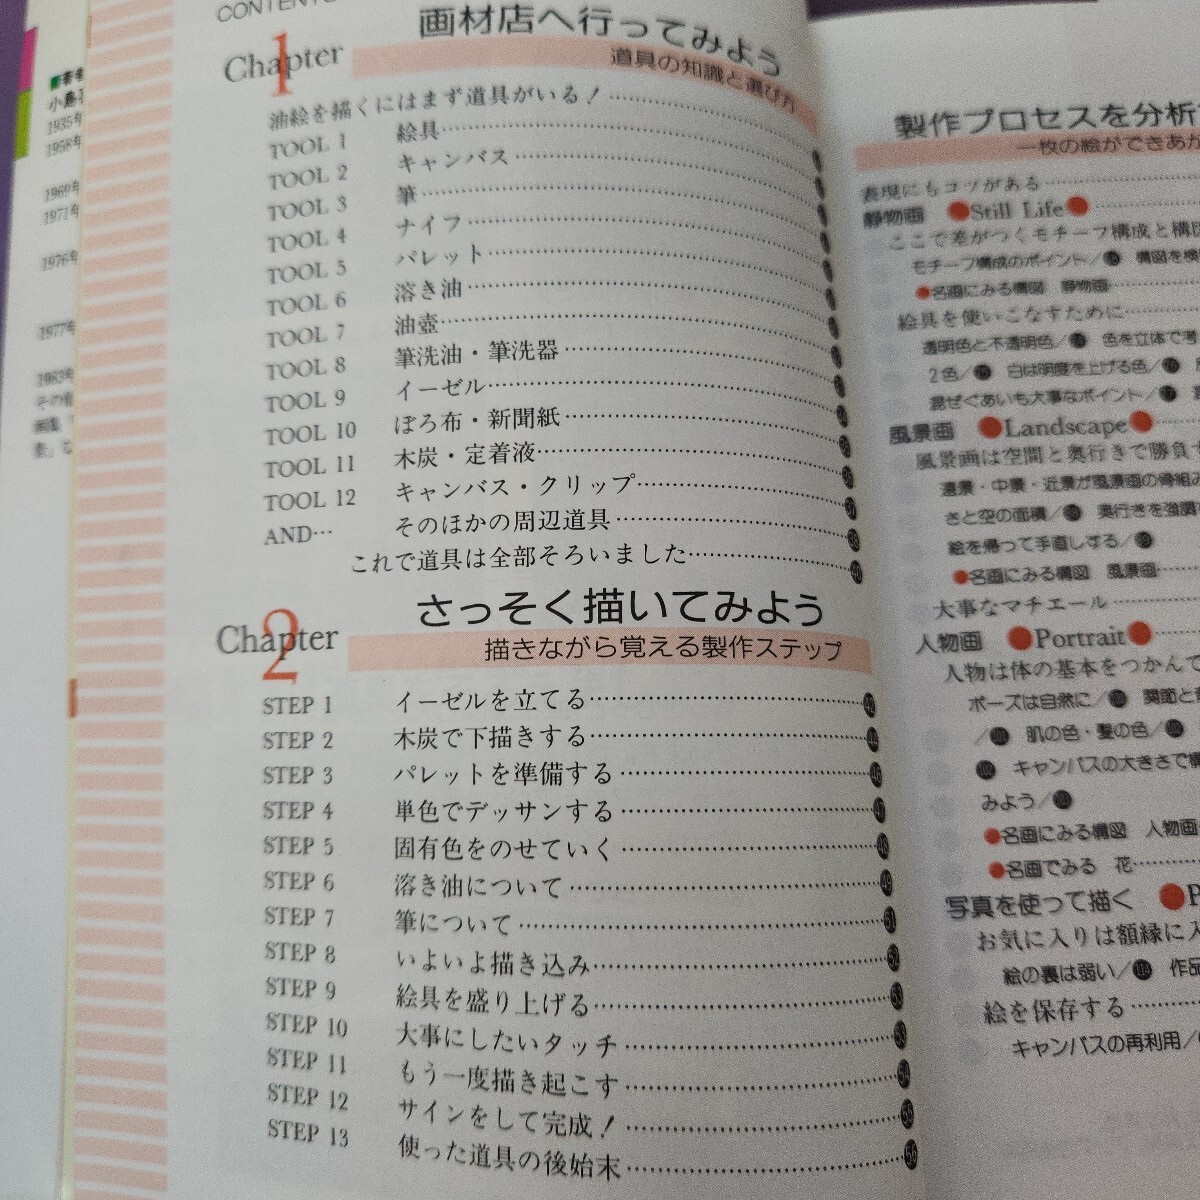 CONTENTS
Chapter 1
画材店へ行ってみよう
道具の知識と選び方
油絵を描くにはまず道具がいる！
TOOL 1 絵具
TOOL 2 キャンバス
TOOL 3 筆
TOOL 4 ナイフ
TOOL 5 パレット
TOOL 6 溶き油
TOOL 7 油壺
TOOL 8 筆洗油・筆洗器
TOOL 9 イーゼル
TOOL 10 ぼろ布・新聞紙
TOOL 11 木炭・定着液
TOOL 12 キャンバス・クリップ
AND… そのほかの周辺道具
これで道具は全部そろいました 40
Chapter 2
さっそく描いてみよう
描きながら覚える製作ステップ
STEP 1 イーゼルを立てる 42
STEP 2 木炭で下描きする 44
STEP 3 パレットを準備する 46
STEP 4 単色でデッサンする 47
STEP 5 固有色をのせていく 48
STEP 6 溶き油について 49
STEP 7 筆について 51
STEP 8 いよいよ描き込み 52
STEP 9 絵具を盛り上げる 53
STEP 10 大事にしたいタッチ 53
STEP 11 もう一度描き起こす 54
STEP 12 サインをして完成！ 55
STEP 13 使った道具の後始末 56
■著者
1935年
1958年
1969年
1971年
1976年
1977年
1983年
製作プロセスを分析
一枚の絵ができあが
表現にもコツがある
静物画 ●Still Life●
ここで差がつくモチーフ構成と構図
モチーフ構成のポイント／ 構図を検
●名画にみる構図 静物画
絵具を使いこなすために
透明色と不透明色／ 色を立体で考
2色／ 白は明度を上げる色／
混ぜぐあいも大事なポイント／
風景画 ●Landscape●
風景画は空間と奥行きで勝負す
遠景・中景・近景が風景画の骨組み
さと空の面積／ 奥行きを強調
絵を帰って手直しする／
●名画にみる構図 風景画
大事なマチエール
人物画 ●Portrait●
人物は体の基本をつかんで
ポーズは自然に／ 関節と
／ 肌の色・髪の色／
キャンバスの大きさで構
みよう／
●名画にみる構図 人物画
●名画でみる 花
写真を使って描く ●P
お気に入りは額縁に入
絵の裏は弱い／ 作品
絵を保存する
キャンバスの再利用／